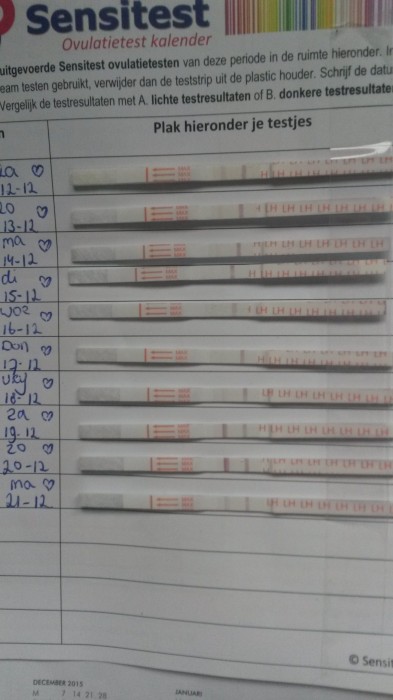 Sensitest
Ovulatietest kalender
uitgevoerde Sensitest ovulatietesten van deze periode in de ruimte hieronder.
eam testen gebruikt, verwijder dan de teststrip uit de plastic houder. Schrijf de datu
Vergelijk de testresultaten met A. lichte testresultaten of B. donkere testresultate
n
Plak hieronder je testjes
za ♡
12-12
zo ♡
13-12
ma ♡
14-12
di ♡
15-12
woe ♡
16-12
Don ♡
17-12
vrij ♡
18-12
za ♡
19-12
zo ♡
20-12
ma ♡
21-12
LH LH LH LH LH LH
© Sensit
DECEMBER 2015
JANUARI
M 7 14 21 28